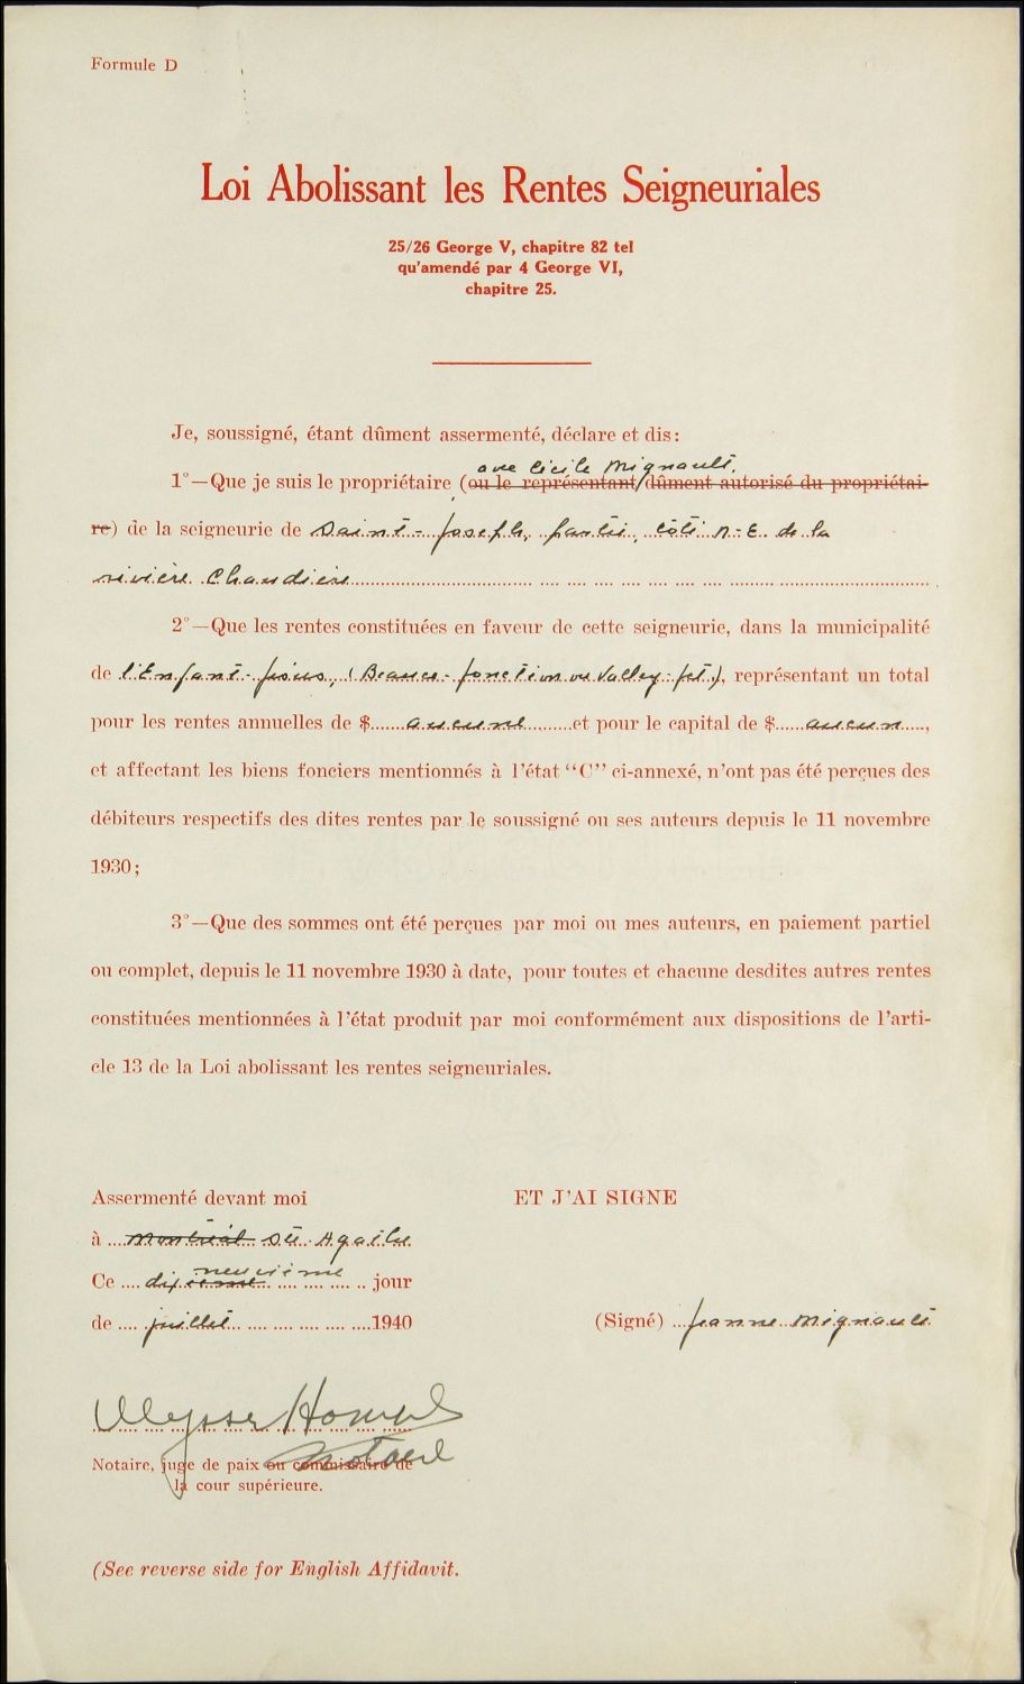 Formule D
Loi Abolissant les Rentes Seigneuriales
25/26 George V, chapitre 82 tel
qu'amendé par 4 George VI,
chapitre 25.
Je, soussigné, étant dûment assermenté, déclare et dis:
avec Cécile Mignault.
1°—Que je suis le propriétaire (ou le représentant/dûment autorisé du propriétai-
re) de la seigneurie de Saint-Joseph, partie, côté N.-E. de la
rivière Chaudière
2°—Que les rentes constituées en faveur de cette seigneurie, dans la municipalité
de l'Enfant-Jésus, (Beauce-Jonction ou Valley Jct.), représentant un total
pour les rentes annuelles de $ aucune et pour le capital de $ aucun,
et affectant les biens fonciers mentionnés à l'état "C" ci-annexé, n'ont pas été perçues des
débiteurs respectifs des dites rentes par le soussigné ou ses auteurs depuis le 11 novembre
1930;
3°—Que des sommes ont été perçues par moi ou mes auteurs, en paiement partiel
ou complet, depuis le 11 novembre 1930 à date, pour toutes et chacune desdites autres rentes
constituées mentionnées à l'état produit par moi conformément aux dispositions de l'arti-
cle 13 de la Loi abolissant les rentes seigneuriales.
Assermenté devant moi ET J'AI SIGNE
à Montréal Ste Agathe
neuvième
Ce dixième jour
de juillet 1940 (Signé) Jeanne Mignault
Ulysse
Notaire
Notaire, juge de paix ou commissaire de
la cour supérieure.
(See reverse side for English Affidavit.